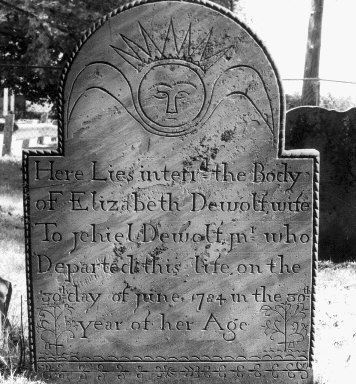 Here Lies interr.d the Body
oF Elizabeth Dewolf, wife
To jehiel Dewolf, jnr. who
Departed this life, on the
30th day of june, 1784 in the 30th
year of her Age